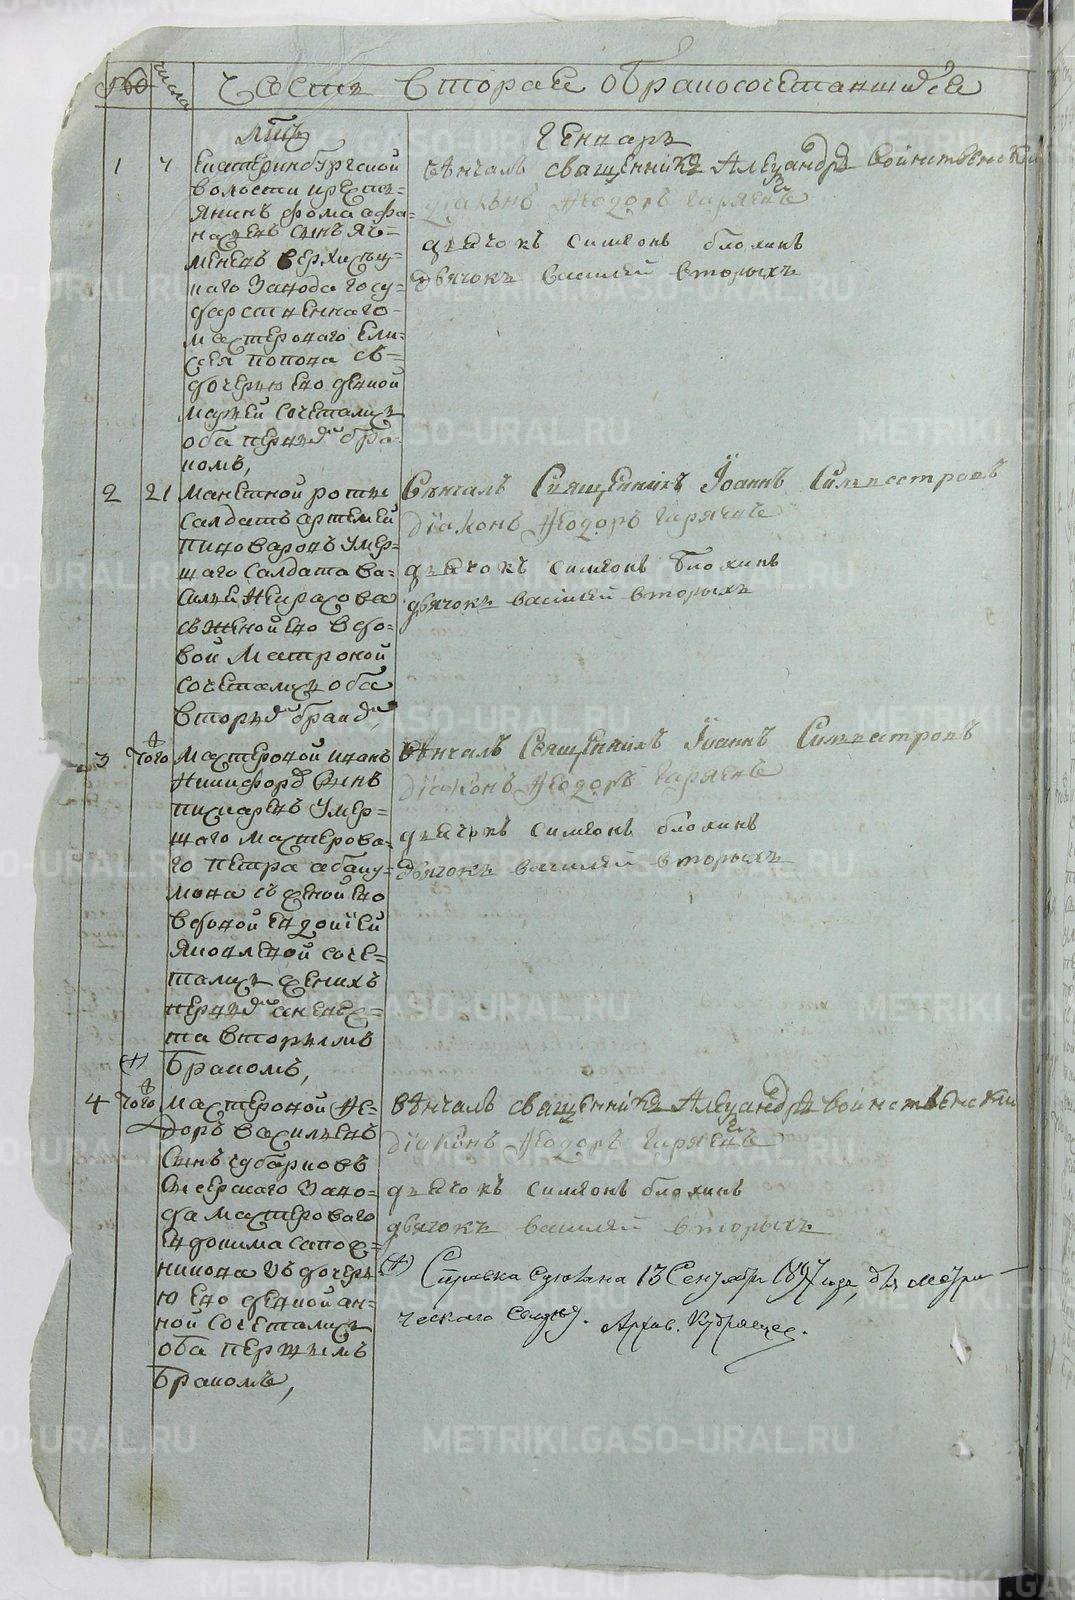 № числа Часть вторая обракосочетавшихся
мцъ Генваръ
1 7 Екатеринбургской
волости крестъ-
янинъ фома афа-
насьевъ сынъ яч-
меневъ верхисец-
каго завода госу-
дарственнаго
мастероваго Ели-
сея попова съ-
дочерью ево девкой
марьей сочетались
оба первымъ бра-
комъ,
Вѣнчалъ священникъ Александръ Воинственскій
діаконъ Ѳеодоръ Гаряевъ
дьячокъ симеонъ блохинъ
дьячокъ василей вторыхъ
2 21 Манетной роты
салдатъ артемей
пивоваровъ умер-
шаго салдата ва-
силья
съ женой ево вдо-
вой Матроной
сочетались оба
вторымъ бракомъ,
Вѣнчалъ Священникъ Іоаннъ Силвестровъ
діаконъ Ѳеодоръ Гаряевъ
дьячокъ симеонъ блохинъ
дьячокъ василей вторыхъ
3 Того мастеровой иванъ
Никифоровъ сынъ
писаревъ умер-
шаго мастерова-
го петра абаку-
мова съ женой ево
вдовой евдокіей
яковлевой соче-
тались женихъ
первымъ а невес-
та вторымъ
(+) бракомъ,
Вѣнчалъ Священникъ Іоаннъ Силвестровъ
діаконъ Ѳеодоръ Гаряевъ
дьячокъ симеонъ блохинъ
дьячокъ василей вторыхъ
4 Того мастеровой Ѳе-
доръ васильевъ
сынъ чубарковъ
завo-
да мастероваго
евдокима сапож-
никова съ дочерь-
ю ево девкой ан-
ной сочетались
оба первымъ
бракомъ,
Вѣнчалъ священникъ Александръ Воинственскій
діаконъ Ѳеодоръ Гаряевъ
дьячокъ симеонъ блохинъ
дьячокъ василей вторыхъ
(+) Справка сдѣлана 13 Сентября 1897 года, для метри-
ческаго свидѣт. Архив. Кудрявцев.
METRIKI.GASO-URAL.RU